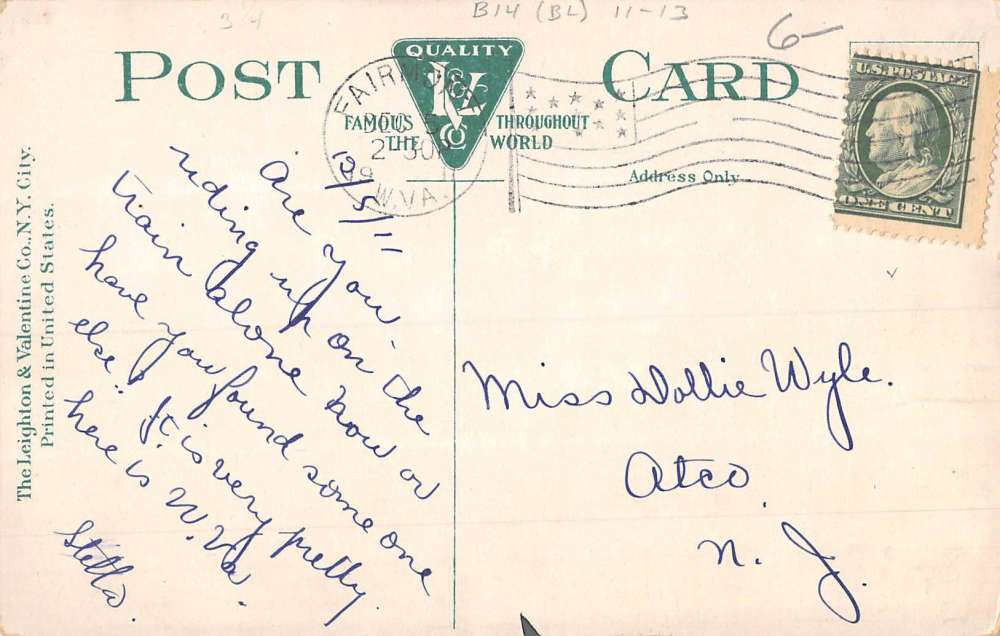 34
B14 (BL) 11-13
6-
POST CARD
QUALITY
LVCo
FAMOUS THROUGHOUT
THE WORLD
FAIRMONT
DEC 5
2 30P
W.VA.
U.S. POSTAGE
ONE CENT
Address Only
The Leighton & Valentine Co., N.Y. City.
Printed in United States.
12/5/11
Are you
riding up on the
train alone now or
have you found some one
else. It is very pretty
here is W. Va.
Stella.
Miss Dollie Wyle.
Atco
N. J.